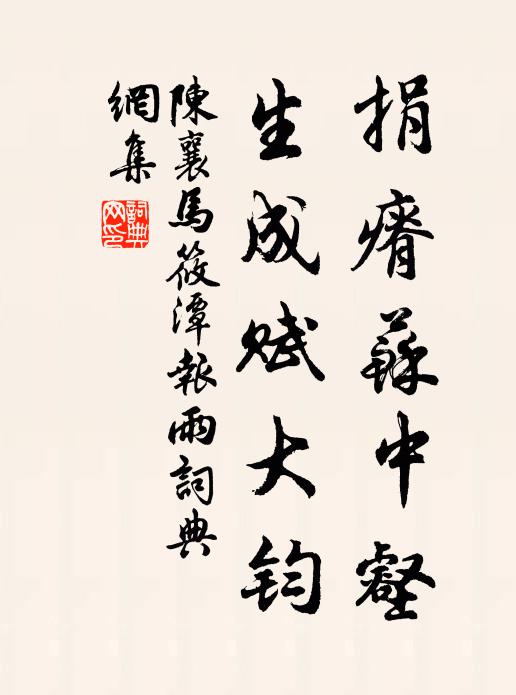 捐瘠蘇中壑
生成賦大鈞
陳襄馬筱潭報雨詞典
網集
詞典網印